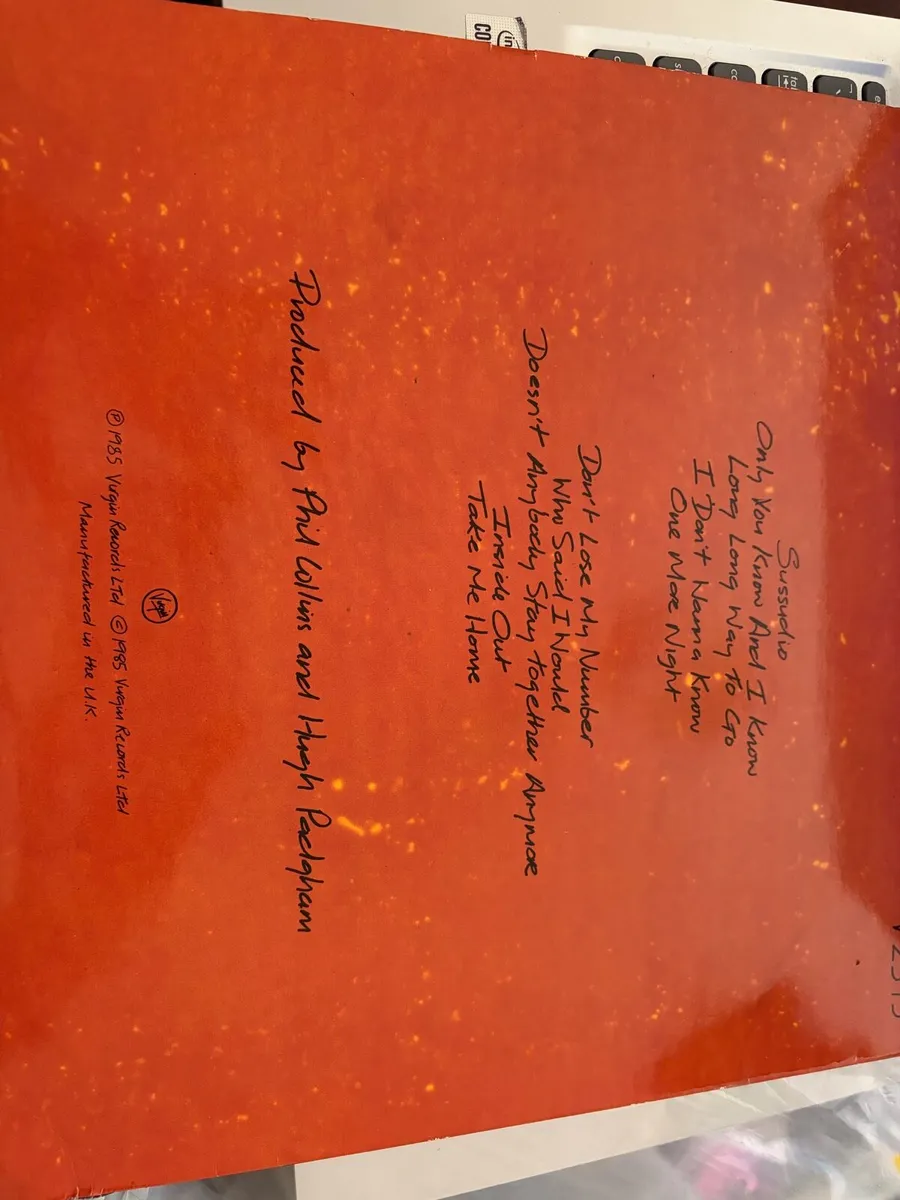 V2345
Sussudio
Only You Know And I Know
Long Long Way To Go
I Don't Wanna Know
One More Night
Don't Lose My Number
Who Said I Would
Doesn't Anybody Stay together Anymore
Inside Out
Take Me Home
Produced by Phil Collins and Hugh Padgham
Virgin
℗ 1985 Virgin Records Ltd © 1985 Virgin Records Ltd
Manufactured in the U.K.
CO
in
tab